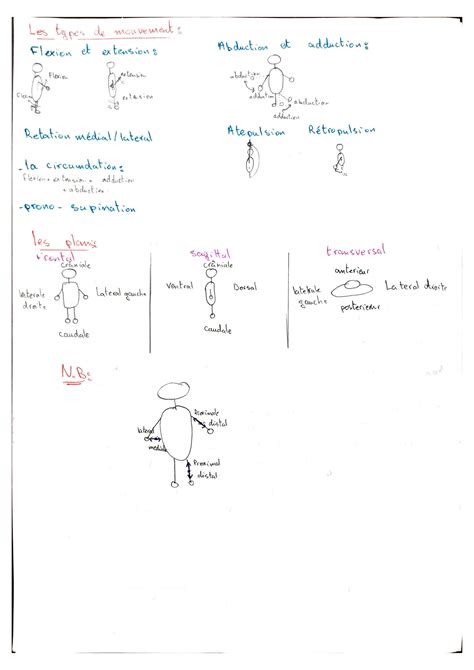 Les types de mouvement:
Flexion et extension:
Abduction et adduction:
Flexion
Flexion
extension
extension
abduction
adduction
abduction
adduction
Rotation médial/lateral
Atepulsion Rétropulsion
-la circumdation:
flexion + extension + adduction
+ abduction
-prono-supination
les plans:
frontal
crâniale
laterale droite
Lateral gauche
caudale
sagittal
crâniale
ventral
Dorsal
caudale
transversal
anterieur
laterale gauche
Lateral droite
posterieur
N.B:
Proximale
distal
lateral
médial
Proximal
distal